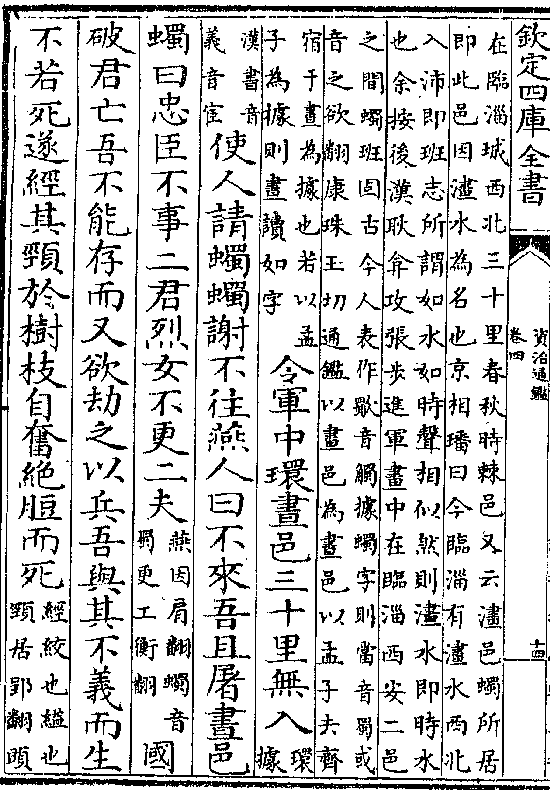 欽定四庫全書
資治通鑑
卷四
十四
在臨淄城西北三十里春秋時棘邑又云澅邑蠋所居
即此邑因澅水為名也京相璠曰今臨淄有澅水西北
入沛即班志所謂如水如時聲相似然則澅水即時水
也余按後漢耿弇攻張步進軍畫中在臨淄西安二邑
之間蠋班固古今人表作歜音觸據蠋字則當音蜀或
音之欲翻康珠玉切通鑑以畫邑為晝邑以孟子去齊
宿于晝為據也若以孟
子為據則晝讀如字
令軍中環畫邑三十里無入
環
據
漢書音
義音宦
使人請蠋蠋謝不往燕人曰不來吾且屠畫邑
蠋曰忠臣不事二君烈女不更二夫
燕因肩翻蠋音
蜀更工衡翻
國
破君亡吾不能存而又欲劫之以兵吾與其不義而生
不若死遂經其頸於樹枝自奮絶脰而死
經絞也縊也
頸居郢翻頭